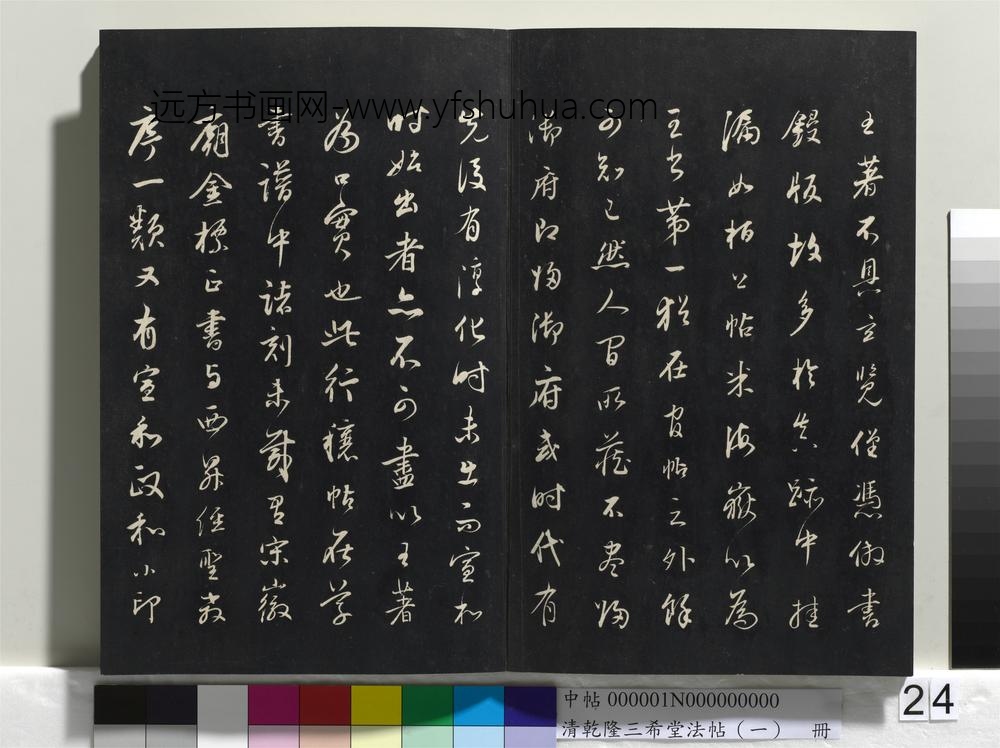 远方书画网-www.yfshuhua.com
王著不具玄覽僅憑倣書
鏝版故多於真蹟中挂
漏如桓公帖米海嶽以為
王書第一猶在官帖之外餘
可知已然人間所藏不盡歸
御府即歸御府或時代有
先後有淳化時未出而宣和
時始出者亦不可盡以王著
為口實也此行穰帖在
書譜中諸刻未載宋徽
廟金標正書與西昇經聖教
序一類又有宣和政和小印
中帖 000001N000000000
清乾隆三希堂法帖（一） 冊
24